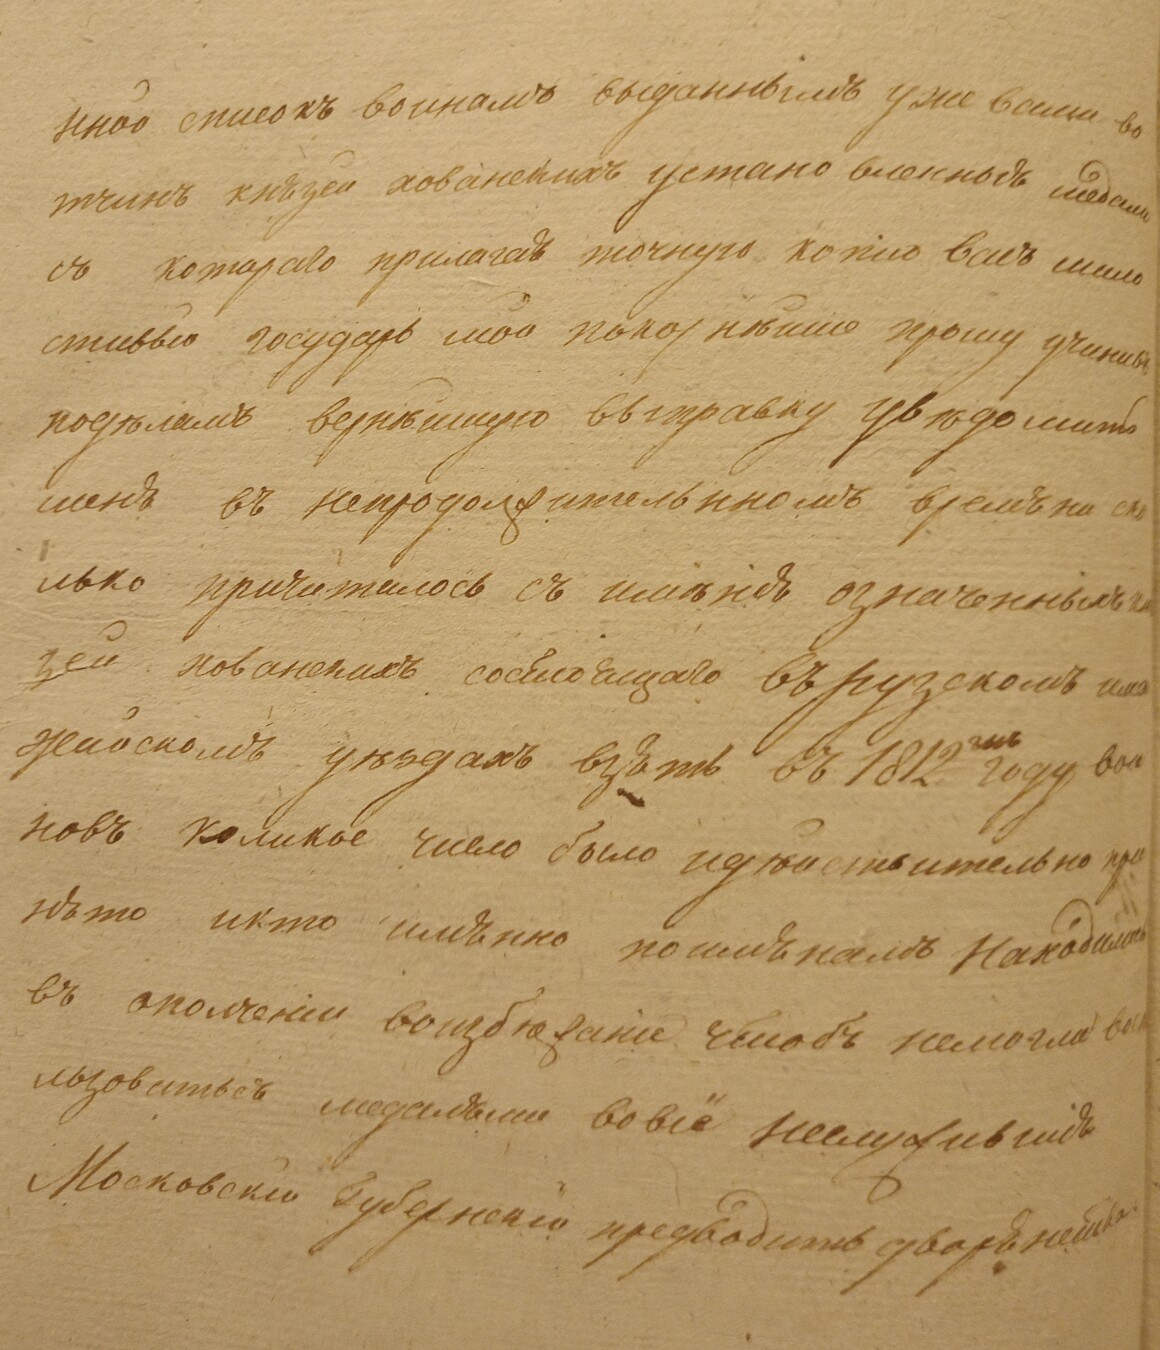 нной списокъ воинамъ выданнымъ уже въ сии во
тчинъ князей хованскихъ установленнояъ медали
съ котораго прилагая точную копию васъ мило
стивый государь мой покорнейше прошу учинивъ
подѣламъ вернѣйшую выправку увѣдомить
меня въ непродолжительнномъ времѣни ско
лько причиталось съ имѣнія означенныхъ кня
зей хованскихъ состоящаго въ рузскомъ и мо
жайскомъ уѣздахъ взять въ 1812мъ году вои
новъ коликое число было и дѣйствительно при
нято и кто имѣнно по имѣнамъ находились
въ ополчении воизбѣжание чтобъ немогла вос
льзоваться медалями вовсѣ неслужившія
Московский Губернский предводитель дворянства